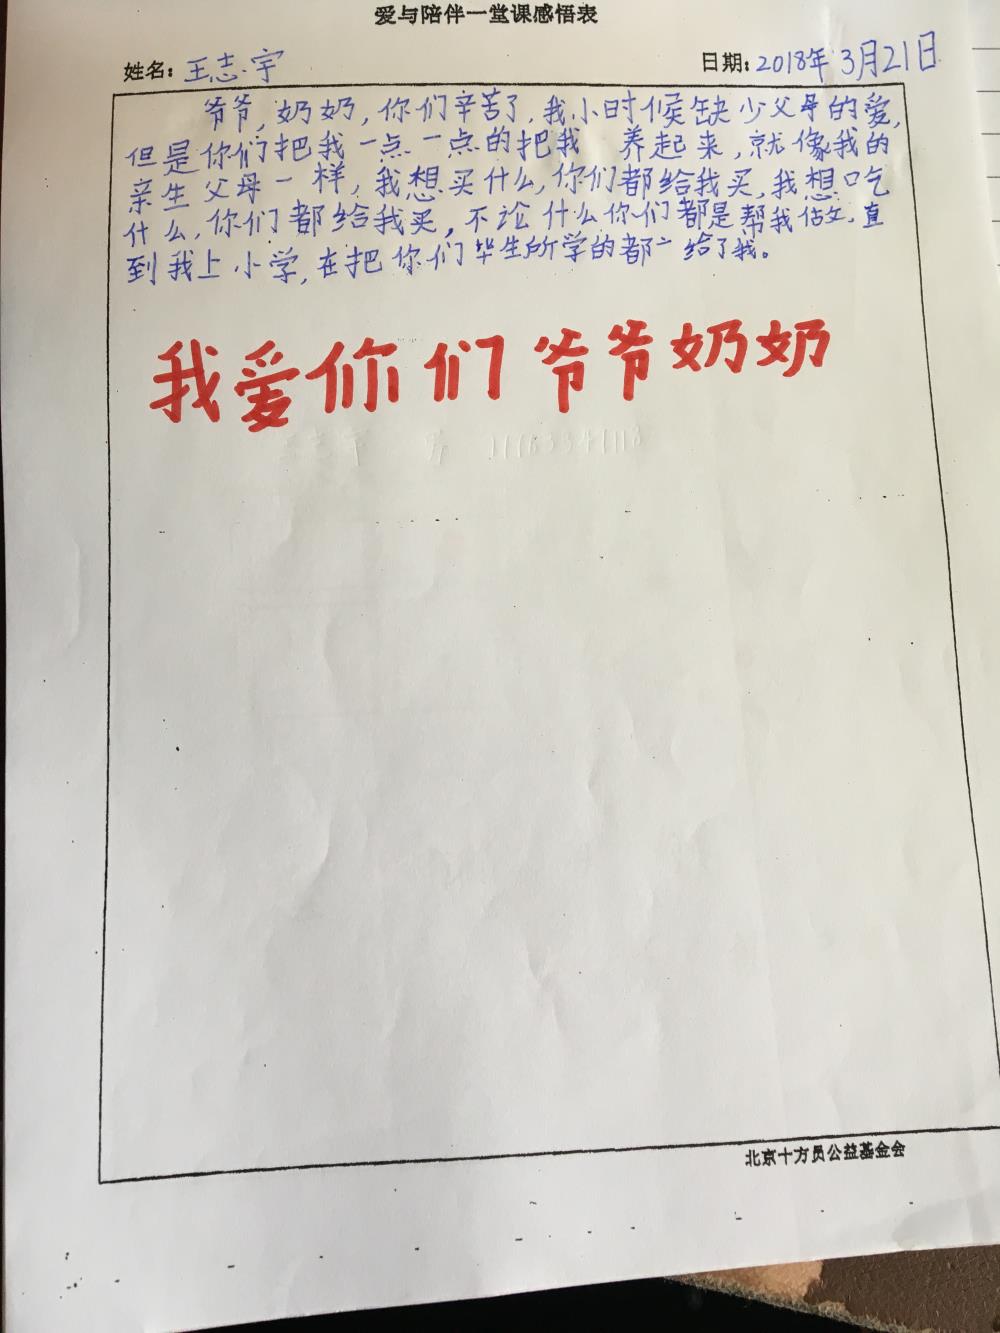 爱与陪伴一堂课感悟表
姓名：王志宇 日期：2018年3月21日
爷爷，奶奶，你们辛苦了，我小时候缺少父母的爱，
但是你们把我一点一点的把我 养起来，就像我的
亲生父母一样，我想买什么，你们都给我买，我想吃
什么，你们都给我买，不论什么你们都是帮我 直
到我上小学，在把你们毕生所学的都 给了我。
我爱你们爷爷奶奶
王志宇 男
北京十方员公益基金会